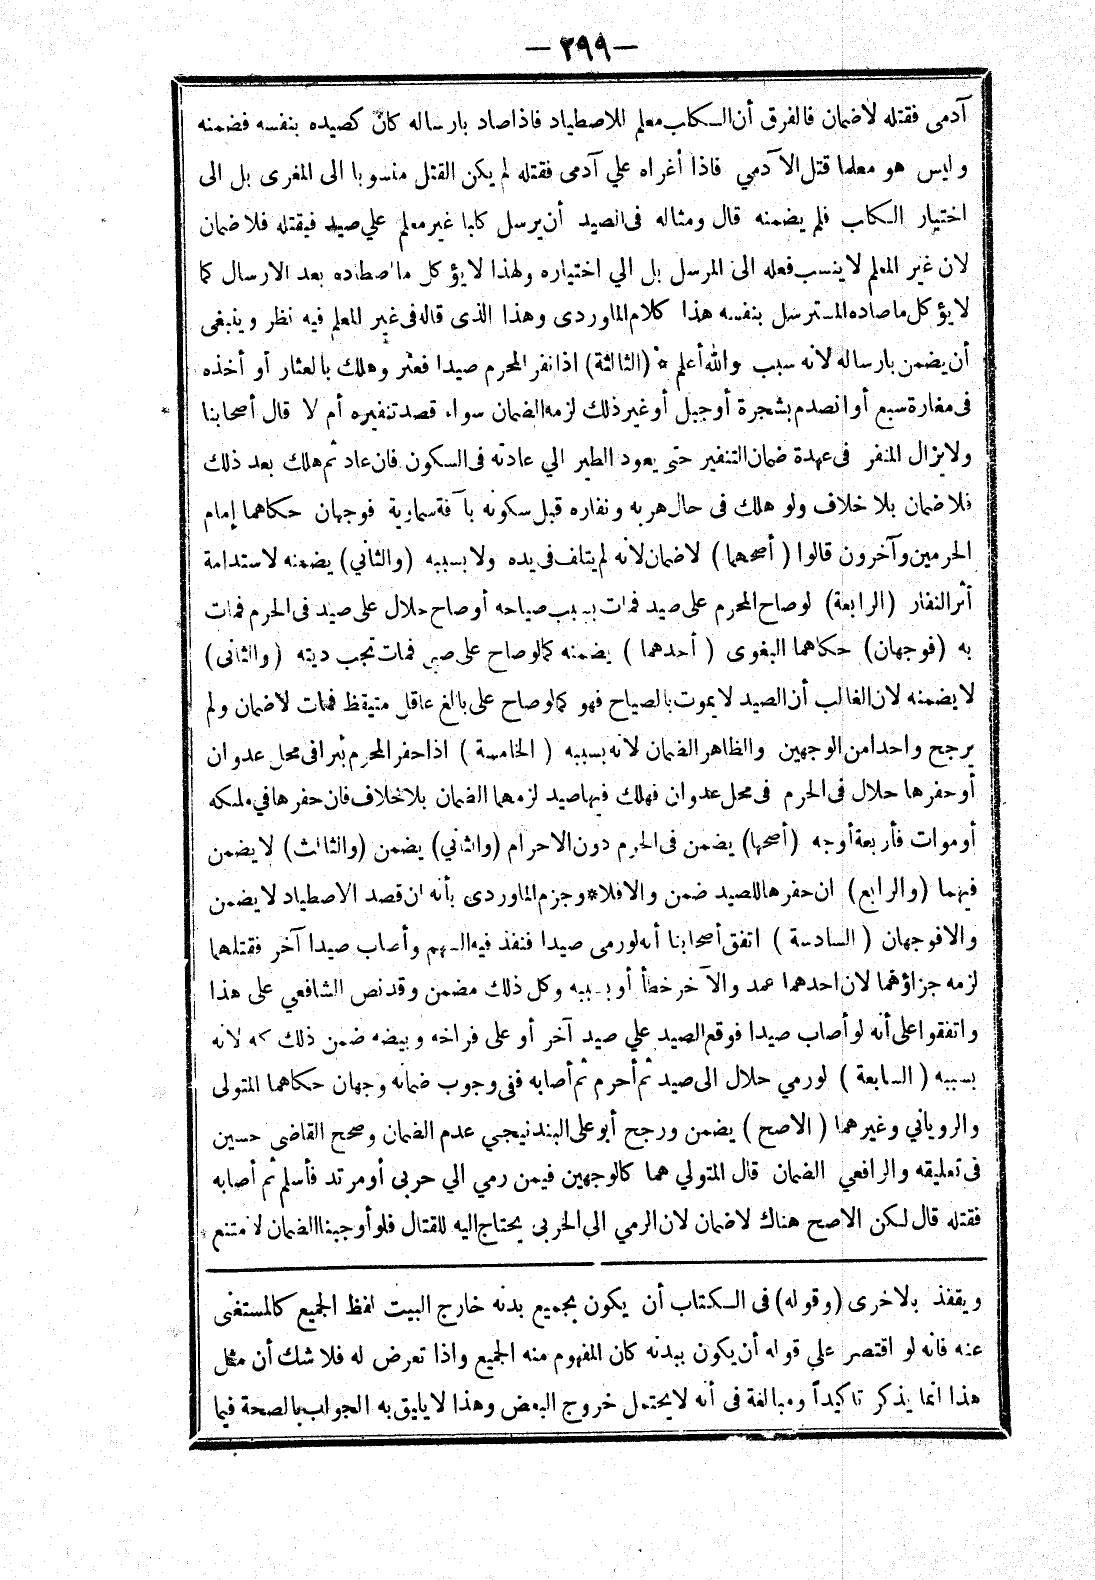 — ٢٩٩ —
آدمى فقتله لاضمان فالفرق أن الكلب معلم للاصطياد فاذا صاد بارساله كان كصيده بنفسه فضمنه
وليس هو معلما قتل الآدمي فاذا أغراه علي آدمى فقتله لم يكن القتل منسوبا الى المغرى بل الى
اختيار الكلب فلم يضمنه قال ومثاله فى الصيد أن يرسل كلبا غير معلم علي صيد فيقتله فلا ضمان
لان غير المعلم لا ينسب فعله الى المرسل بل الي اختياره ولهذا لا يؤكل ما اصطاده بعد الارسال كما
لا يؤكل ما صاده المسترسل بنفسه هذا كلام الماوردى وهذا الذى قاله فى غير المعلم فيه نظر وينبغى
أن يضمن بارساله لانه سبب والله أعلم * (الثالثة) اذا نفر المحرم صيدا فعثر وهلك بالعثار أو أخذه
فى مغارة سبع أو انصدم بشجرة أو جبل أو غير ذلك لزمه الضمان سواء قصد تنفيره أم لا قال أصحابنا
ولا يزال المنفر فى عهدة ضمان التنفير حتى يعود الطير الي عادته فى السكون فان عاد ثم هلك بعد ذلك
فلا ضمان بلا خلاف ولو هلك فى حال هربه ونفاره قبل سكونه بآفة سماوية فوجهان حكاهما إمام
الحرمين وآخرون قالوا (أصحهما) لا ضمان لانه لم يتلف فى يده ولا بسببه (والثاني) يضمنه لاستدامة
أثر النفار (الرابعة) لو صاح المحرم على صيد فمات بسبب صياحه أو صاح حلال على صيد فى الحرم فمات
به (فوجهان) حكاهما البغوى (أحدهما) يضمنه كما لو صاح على صبي فمات تجب ديته (والثانى)
لا يضمنه لان الغالب أن الصيد لا يموت بالصياح فهو كما لو صاح على بالغ عاقل متيقظ فمات لا ضمان ولم
يرجح واحدا من الوجهين والظاهر الضمان لانه بسببه (الخامسة) اذا حفر المحرم بئرا فى محل عدوان
أو حفرها حلال فى الحرم فى محل عدوان فهلك فيها صيد لزمهما الضمان بلا خلاف فان حفرها في ملكه
أو موات فأربعة أوجه (أصحها) يضمن فى الحرم دون الاحرام (والثاني) يضمن (والثالث) لا يضمن
فيهما (والرابع) ان حفرها للصيد ضمن والا فلا * وجزم الماوردى بأنه ان قصد الاصطياد لا يضمن
والا فوجهان (السادسة) اتفق أصحابنا أنه لو رمى صيدا فنفذ فيه السهم وأصاب صيدا آخر فقتلهما
لزمه جزاؤهما لان احدهما عمد والآخر خطأ أو بسببه وكل ذلك مضمن وقد نص الشافعي على هذا
واتفقوا على أنه لو أصاب صيدا فوقع الصيد علي صيد آخر أو على فراخه وبيضه ضمن ذلك كله لانه
بسببه (السابعة) لو رمي حلال الى صيد ثم أحرم ثم أصابه ففى وجوب ضمانه وجهان حكاهما المتولى
والروياني وغيرهما (الاصح) يضمن ورجح أبو على البندنيجي عدم الضمان وصحح القاضى حسين
فى تعليقه والرافعي الضمان قال المتولي هما كالوجهين فيمن رمي الي حربى أو مرتد فأسلم ثم أصابه
فقتله قال لكن الاصح هناك لا ضمان لان الرمي الى الحربى يحتاج اليه للقتال فلو أوجبنا الضمان لامتنع
ويقفذ بالاخرى (وقوله) فى الكتاب أن يكون بجميع بدنه خارج البيت لفظ الجميع كالمستغنى
عنه فانه لو اقتصر علي قوله أن يكون ببدنه كان المفهوم منه الجميع واذا تعرض له فلا شك أن مثل
هذا انما يذكر تاكيداً ومبالغة فى أنه لا يحتمل خروج البعض وهذا لا يليق به الجواب بالصحة فيما